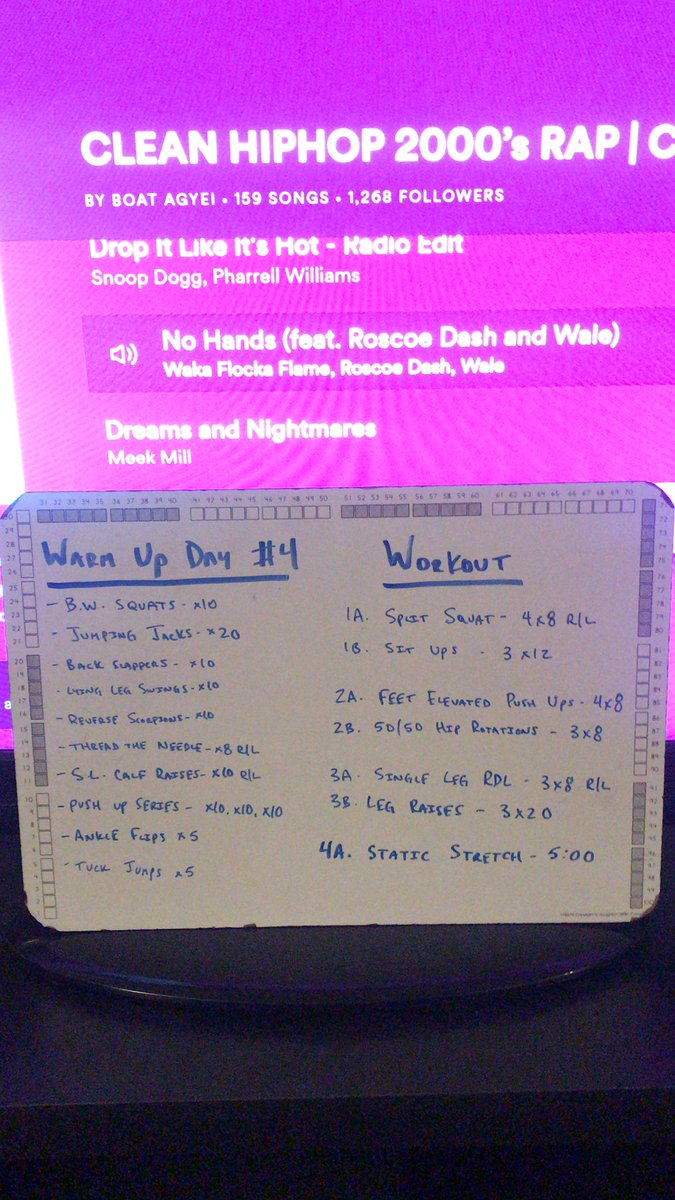 CLEAN HIPHOP 2000's RAP | C
BY BOAT AGYEI • 159 SONGS • 1,268 FOLLOWERS
Drop It Like It's Hot - Radio Edit
Snoop Dogg, Pharrell Williams
No Hands (feat. Roscoe Dash and Wale)
Waka Flocka Flame, Roscoe Dash, Wale
Dreams and Nightmares
Meek Mill
31 32 33 34 35 36 37 38 39 40 41 42 43 44 45 46 47 48 49 50 51 52 53 54 55 56 57 58 59 60 61 62 63 64 65 66 67 68 69 70
WARM UP DAY #4
- B.W. SQUATS - x10
- JUMPING JACKS - x20
- BACK SLAPPERS - x10
- LYING LEG SWINGS - x10
- REVERSE SCORPIONS - x10
- THREAD THE NEEDLE - x8 R/L
- S.L. CALF RAISES - x10 R/L
- PUSH UP SERIES - x10, x10, x10
- ANKLE FLIPS x5
- TUCK JUMPS x5
WORKOUT
1A. SPLIT SQUAT - 4x8 R/L
1B. SIT UPS - 3x12
2A. FEET ELEVATED PUSH UPS - 4x8
2B. 50/50 HIP ROTATIONS - 3x8
3A. SINGLE LEG RDL - 3x8 R/L
3B. LEG RAISES - 3x20
4A. STATIC STRETCH - 5:00